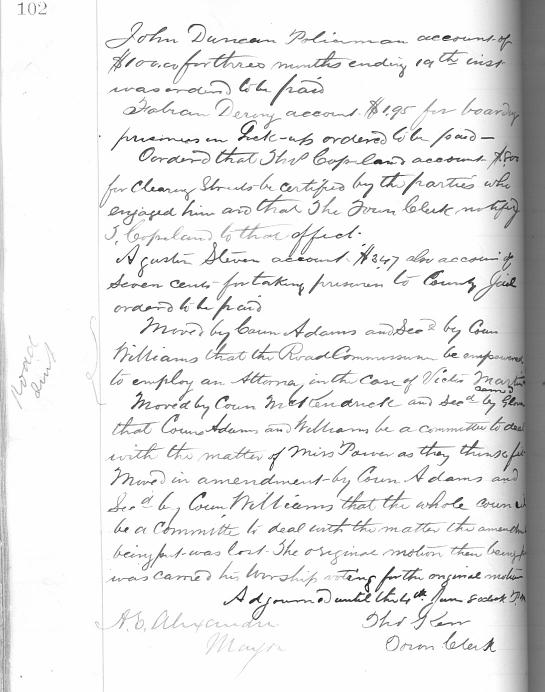 102
John Duncan Policeman account of
$100.00 for three months ending 19th inst
was ordered to be paid
Fabian Deroy account $1.95 for boarding
prisoners in Lock-up ordered to be paid —
Oordered that Thos Copeland account $8.00
for Clearing Streets be certified by the parties who
engaged him and that The Town Clerk notify
T. Copeland to that effect.
Agustin Steven account $3.47 also account of
Seven cents for taking prisoner to County Jail
ordered to be paid
Moved by Coun Adams and Secd by Coun
Williams that the Road Commissioner be empowered
to employ an Attorney in the case of Victor Martin
Road
Moved by Coun McKendrick and Secd by
that Couns Adams and Williams be a committee to deal
with the matter of Miss Power as they think fit
Moved in amendment by Coun Adams and
Secd by Coun Williams that the whole council
be a Committe to deal with the matter the amendment
being put was lost. The original motion then being put
was carried his Worship voting for the original motion
Adjourned until the 4th June 8 oclock P.M
A.E. Alexander Thos Kerr
Mayor Town Clerk